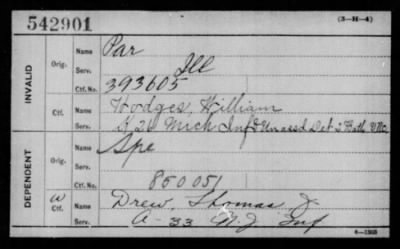 542901 (3-H-4)
INVALID
Orig. Name Par
Serv. Ill
Ctf. No. 393605
Ctf. Name Hodges, William
Serv. K 26 Mich Inf & Unassd Det 2 Batl V.R.C.
DEPENDENT
Orig. Name Spe
Serv.
Ctf. No. 850051
W Ctf. Name Drew, Thomas J.
Serv. A-33 N.J. Inf